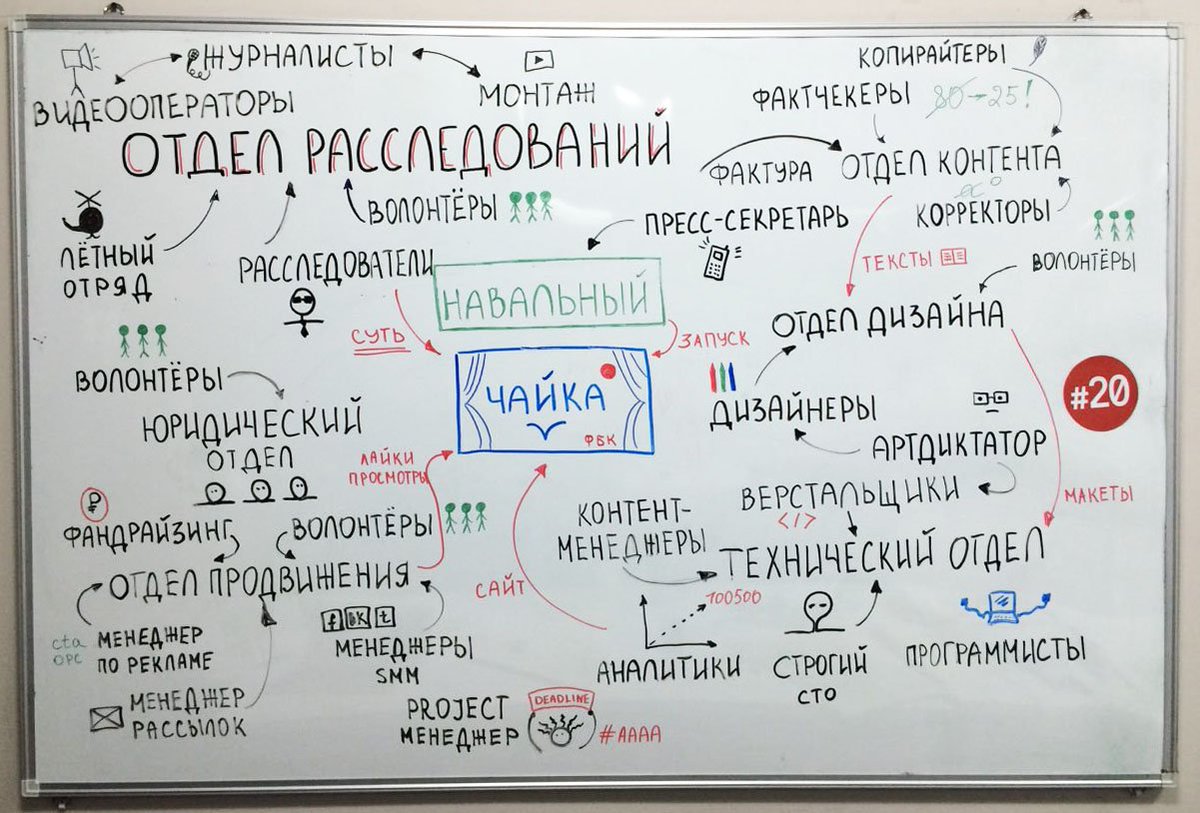 ЖУРНАЛИСТЫ
ВИДЕООПЕРАТОРЫ
МОНТАЖ
КОПИРАЙТЕРЫ
ФАКТЧЕКЕРЫ
80→25!
ОТДЕЛ РАССЛЕДОВАНИЙ
ФАКТУРА
ОТДЕЛ КОНТЕНТА
ВОЛОНТЁРЫ
ПРЕСС-СЕКРЕТАРЬ
КОРРЕКТОРЫ
ЛЁТНЫЙ
ОТРЯД
РАССЛЕДОВАТЕЛИ
ТЕКСТЫ
ВОЛОНТЁРЫ
НАВАЛЬНЫЙ
ОТДЕЛ ДИЗАЙНА
СУТЬ
ЗАПУСК
ВОЛОНТЁРЫ
ЧАЙКА
ФБК
ДИЗАЙНЕРЫ
#20
ЮРИДИЧЕСКИЙ
ОТДЕЛ
АРТДИКТАТОР
ЛАЙКИ
ПРОСМОТРЫ
ВЕРСТАЛЬЩИКИ
</>
МАКЕТЫ
₽
ФАНДРАЙЗИНГ
ВОЛОНТЁРЫ
КОНТЕНТ-
МЕНЕДЖЕРЫ
ТЕХНИЧЕСКИЙ ОТДЕЛ
ОТДЕЛ ПРОДВИЖЕНИЯ
САЙТ
100500
cta
cpc
МЕНЕДЖЕР
ПО РЕКЛАМЕ
f ВК t
МЕНЕДЖЕРЫ
SMM
АНАЛИТИКИ
СТРОГИЙ
СТО
ПРОГРАММИСТЫ
МЕНЕДЖЕР
РАССЫЛОК
PROJECT
МЕНЕДЖЕР
DEADLINE
#АААА